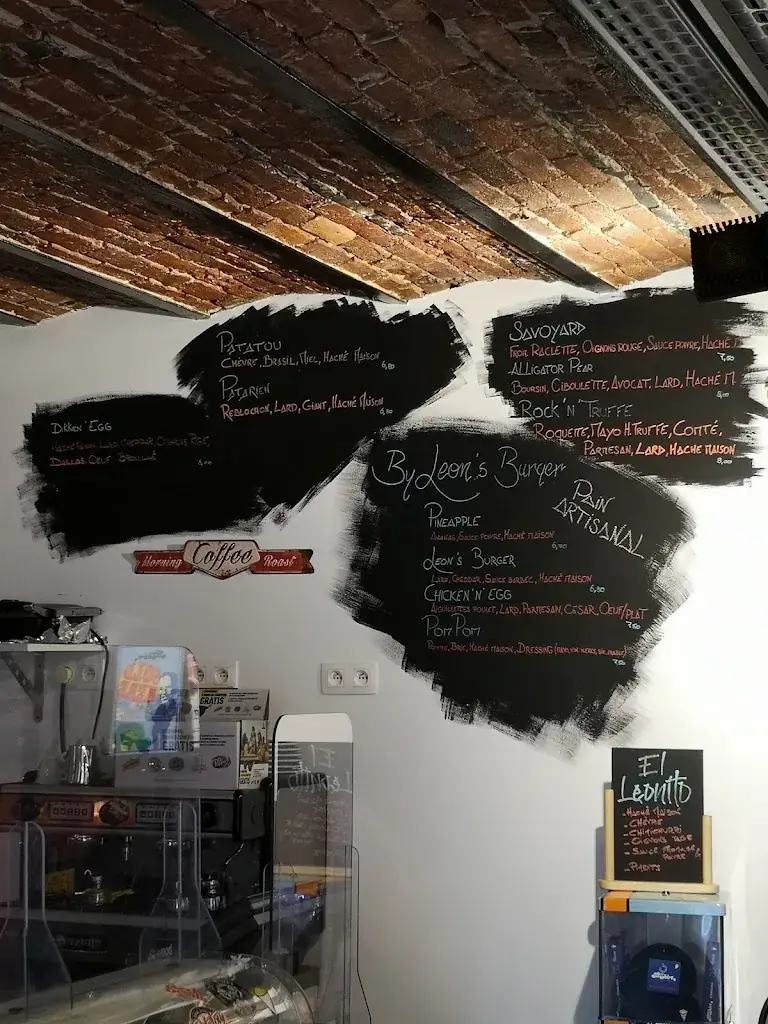 PATATOU
CHÈVRE, BRASIL, MIEL, HACHÉ MAISON
6,80
PATARIEN
REBLOCHON, LARD, GEANT, HACHÉ MAISON
6,80
DIKKEN' EGG
HACHÉ MAISON, LARD, CHEDDAR, OIGNONS
DALLAS, OEUF BROUILLÉ
SAVOYARD
FROM. RACLETTE, OIGNONS ROUGE, SAUCE POIVRE, HACHÉ
7,50
ALLIGATOR PEAR
BOURSIN, CIBOULETTE, AVOCAT, LARD, HACHÉ M.
ROCK'N'TRUFFE
ROQUETTE, MAYO H.TRUFFE, COMTÉ,
PARMESAN, LARD, HACHE MAISON
8,00
By Leon's Burger
PAIN
ARTISANAL
PINEAPPLE
ANANAS, SAUCE POIVRE, HACHÉ MAISON
LEON'S BURGER
LARD, CHEDDAR, SAUCE BARBEC, HACHÉ MAISON
6,80
CHICKEN'N' EGG
AIGUILLETTES POULET, LARD, PARMESAN, CÉSAR, OEUF/PLAT
7,50
POM POM
POMME, BRIE, HACHÉ MAISON, DRESSING
7,50
Morning Coffee Roast
GRATIS
GRATIS
El
Leonito
- HACHÉ MAISON
- CHÈVRE
- CHIMICHURRI
- OIGNONS
- SAUCE
- PIMENTS
El
Leonito